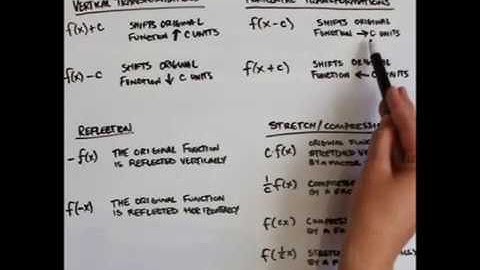 VERTICAL TRANSFORMATIONS
f(x)+c SHIFTS ORIGINAL
FUNCTION ↑ C UNITS
f(x)-c SHIFTS ORIGINAL
FUNCTION ↓ C UNITS
TRANSFORMATIONS
f(x-c) SHIFTS ORIGINAL
FUNCTION → C UNITS
f(x+c) SHIFTS
FUNCTION ← UNITS
REFLECTION
-f(x) THE ORIGINAL FUNCTION
IS REFLECTED VERTICALLY
f(-x) THE ORIGINAL FUNCTION
IS REFLECTED HORIZONTALLY
STRETCH/COMPRESSION
c f(x) ORIGINAL
STRETCHED
BY A FACTOR
1/c f(x)
BY A
f(cx)
BY A
f(1/c x)
BY A